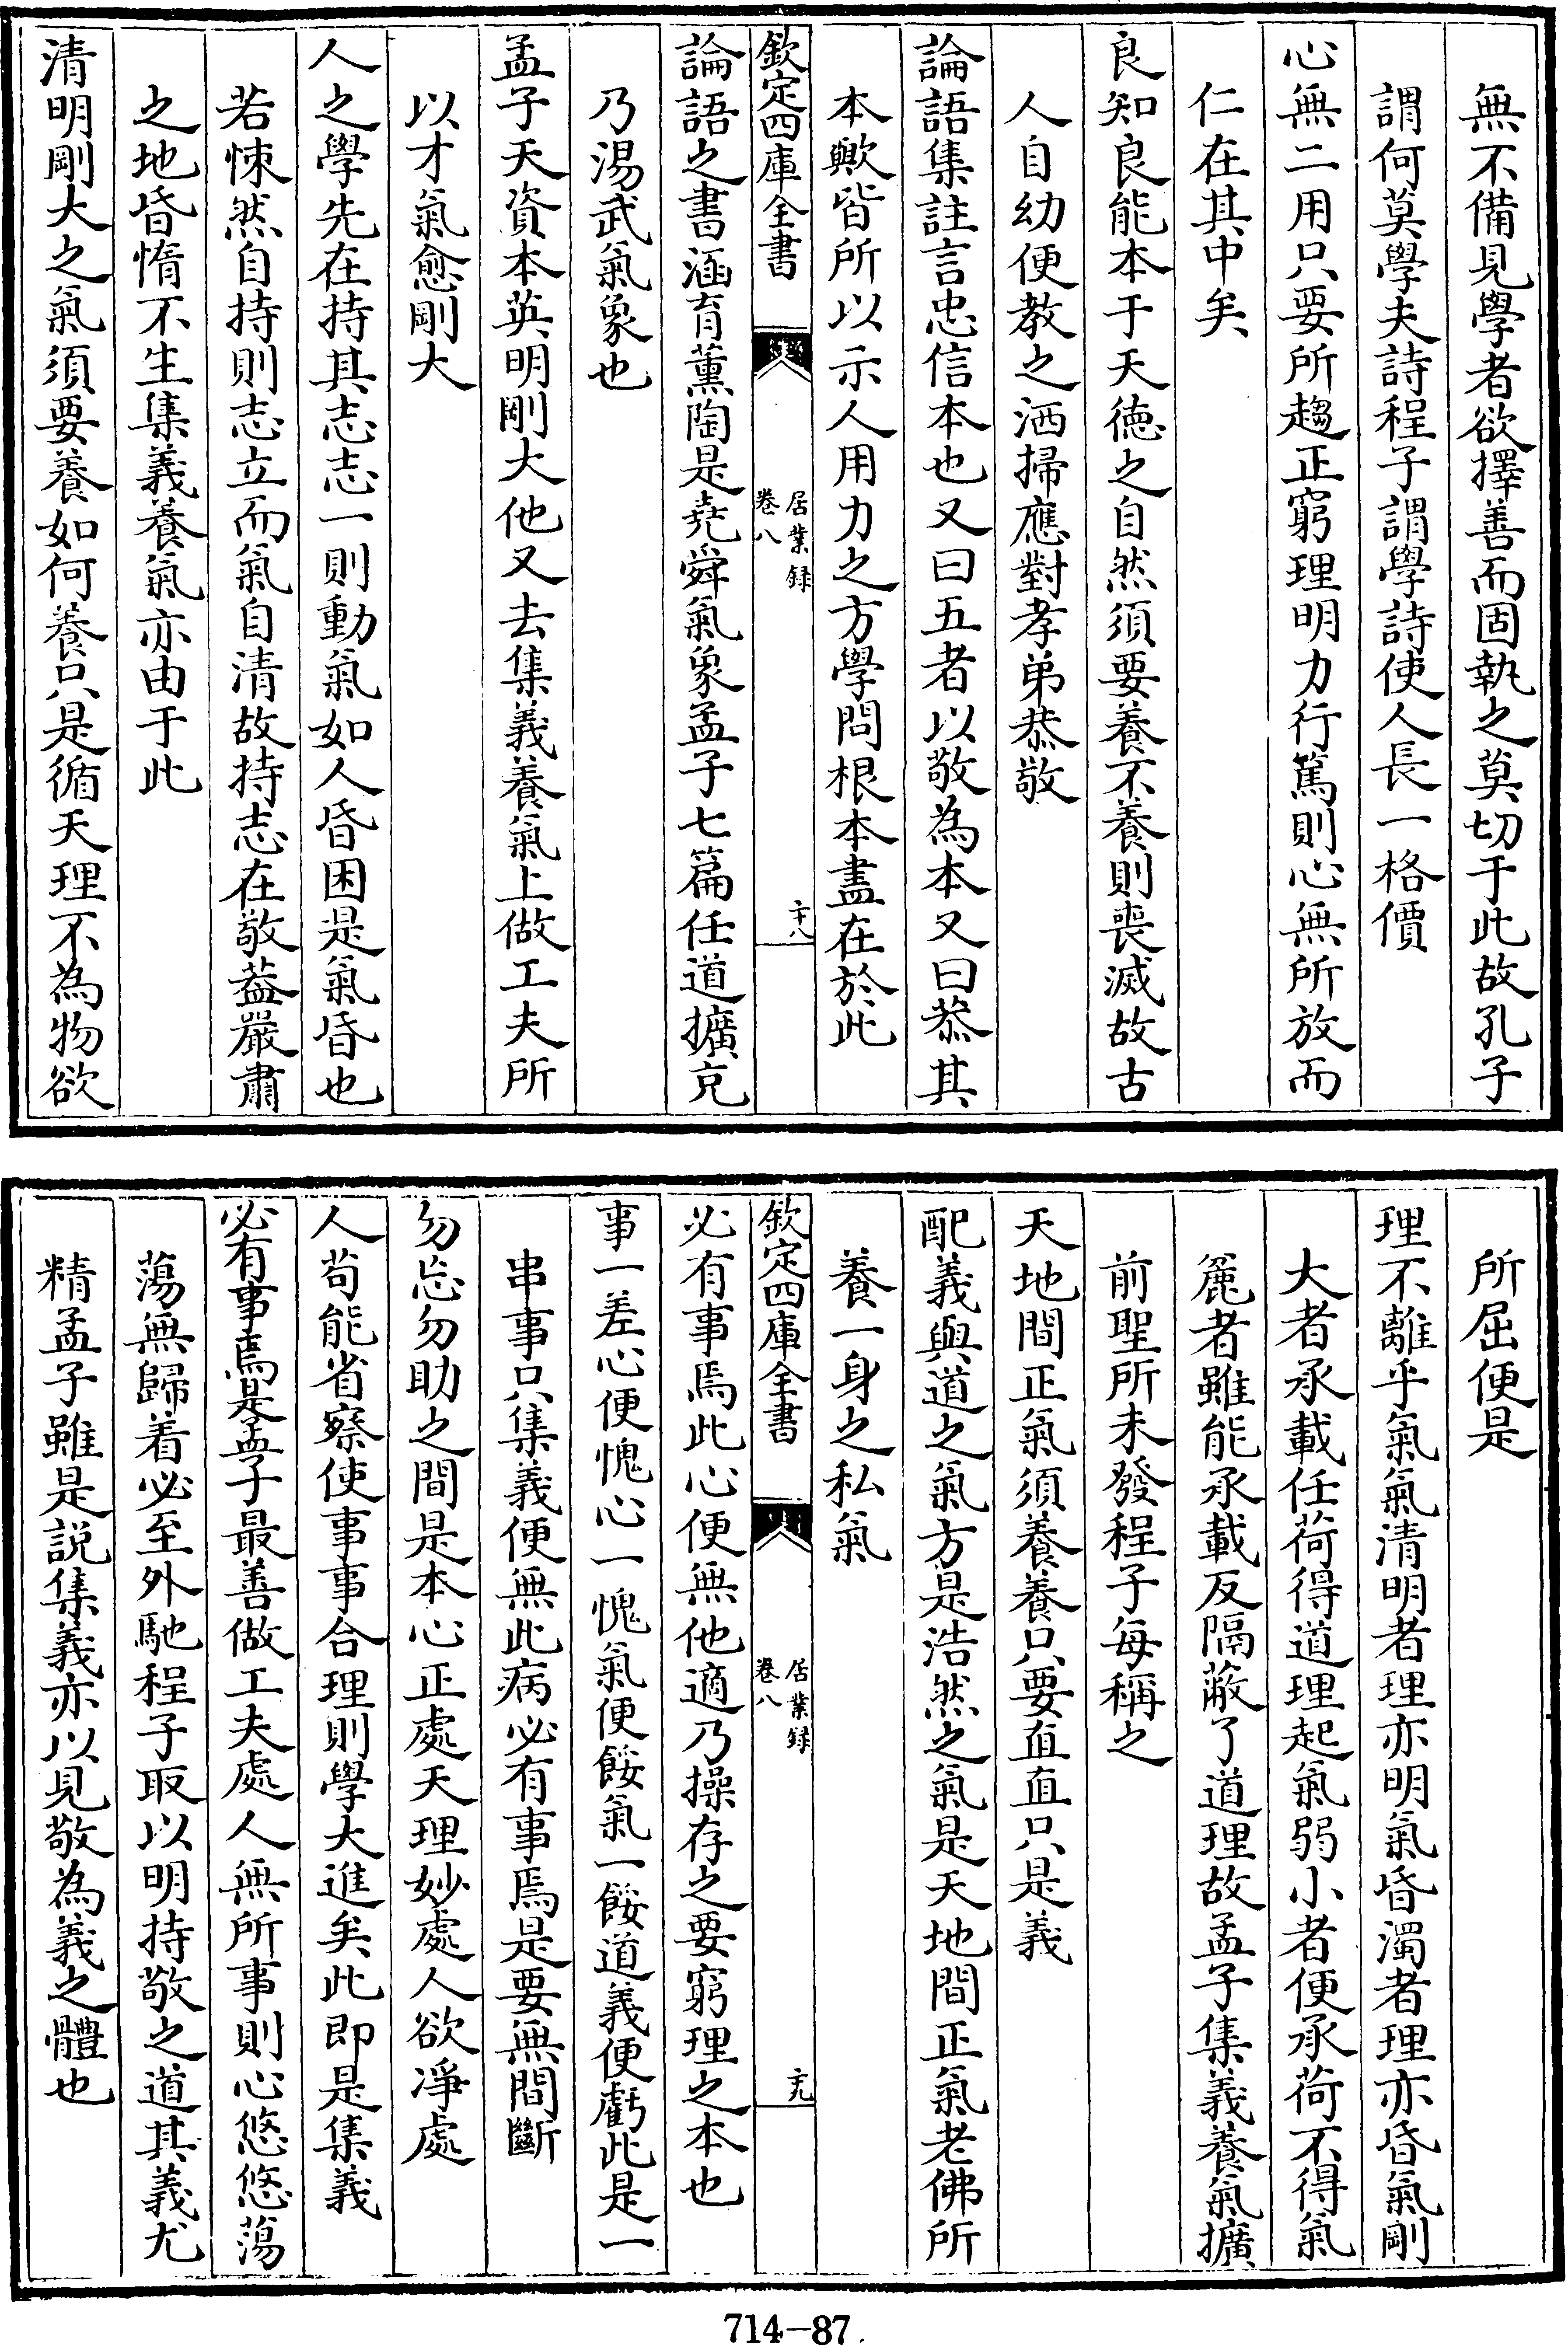 無不備見學者欲擇善而固執之莫切于此故孔子
謂何莫學夫詩程子謂學詩使人長一格價
心無二用只要所趨正窮理明力行篤則心無所放而
仁在其中矣
良知良能本于天德之自然須要養不養則喪滅故古
人自幼便教之洒掃應對孝弟恭敬
論語集註言忠信本也又曰五者以敬為本又曰恭其
本歟皆所以示人用力之方學問根本盡在於此
欽定四庫全書
居業録
卷八
十八
論語之書涵育薰陶是堯舜氣象孟子七篇任道擴克
乃湯武氣象也
孟子天資本英明剛大他又去集義養氣上做工夫所
以才氣愈剛大
人之學先在持其志志一則動氣如人昏困是氣昏也
若悚然自持則志立而氣自清故持志在敬葢嚴肅
之地昏惰不生集義養氣亦由于此
清明剛大之氣須要養如何養只是循天理不為物欲
所屈便是
理不離乎氣氣清明者理亦明氣昏濁者理亦昏氣剛
大者承載任荷得道理起氣弱小者便承荷不得氣
麄者雖能承載反隔蔽了道理故孟子集義養氣擴
前聖所未發程子每稱之
天地間正氣須養養只要直直只是義
配義與道之氣方是浩然之氣是天地間正氣老佛所
養一身之私氣
欽定四庫全書
居業録
卷八
十九
必有事焉此心便無他適乃操存之要窮理之本也
事一差心便愧心一愧氣便餒氣一餒道義便虧此是一
串事只集義便無此病必有事焉是要無間斷
勿忘勿助之間是本心正處天理妙處人欲淨處
人苟能省察使事事合理則學大進矣此即是集義
必有事焉是孟子最善做工夫處人無所事則心悠悠蕩
蕩無歸着必至外馳程子取以明持敬之道其義尤
精孟子雖是説集義亦以見敬為義之體也
714-87